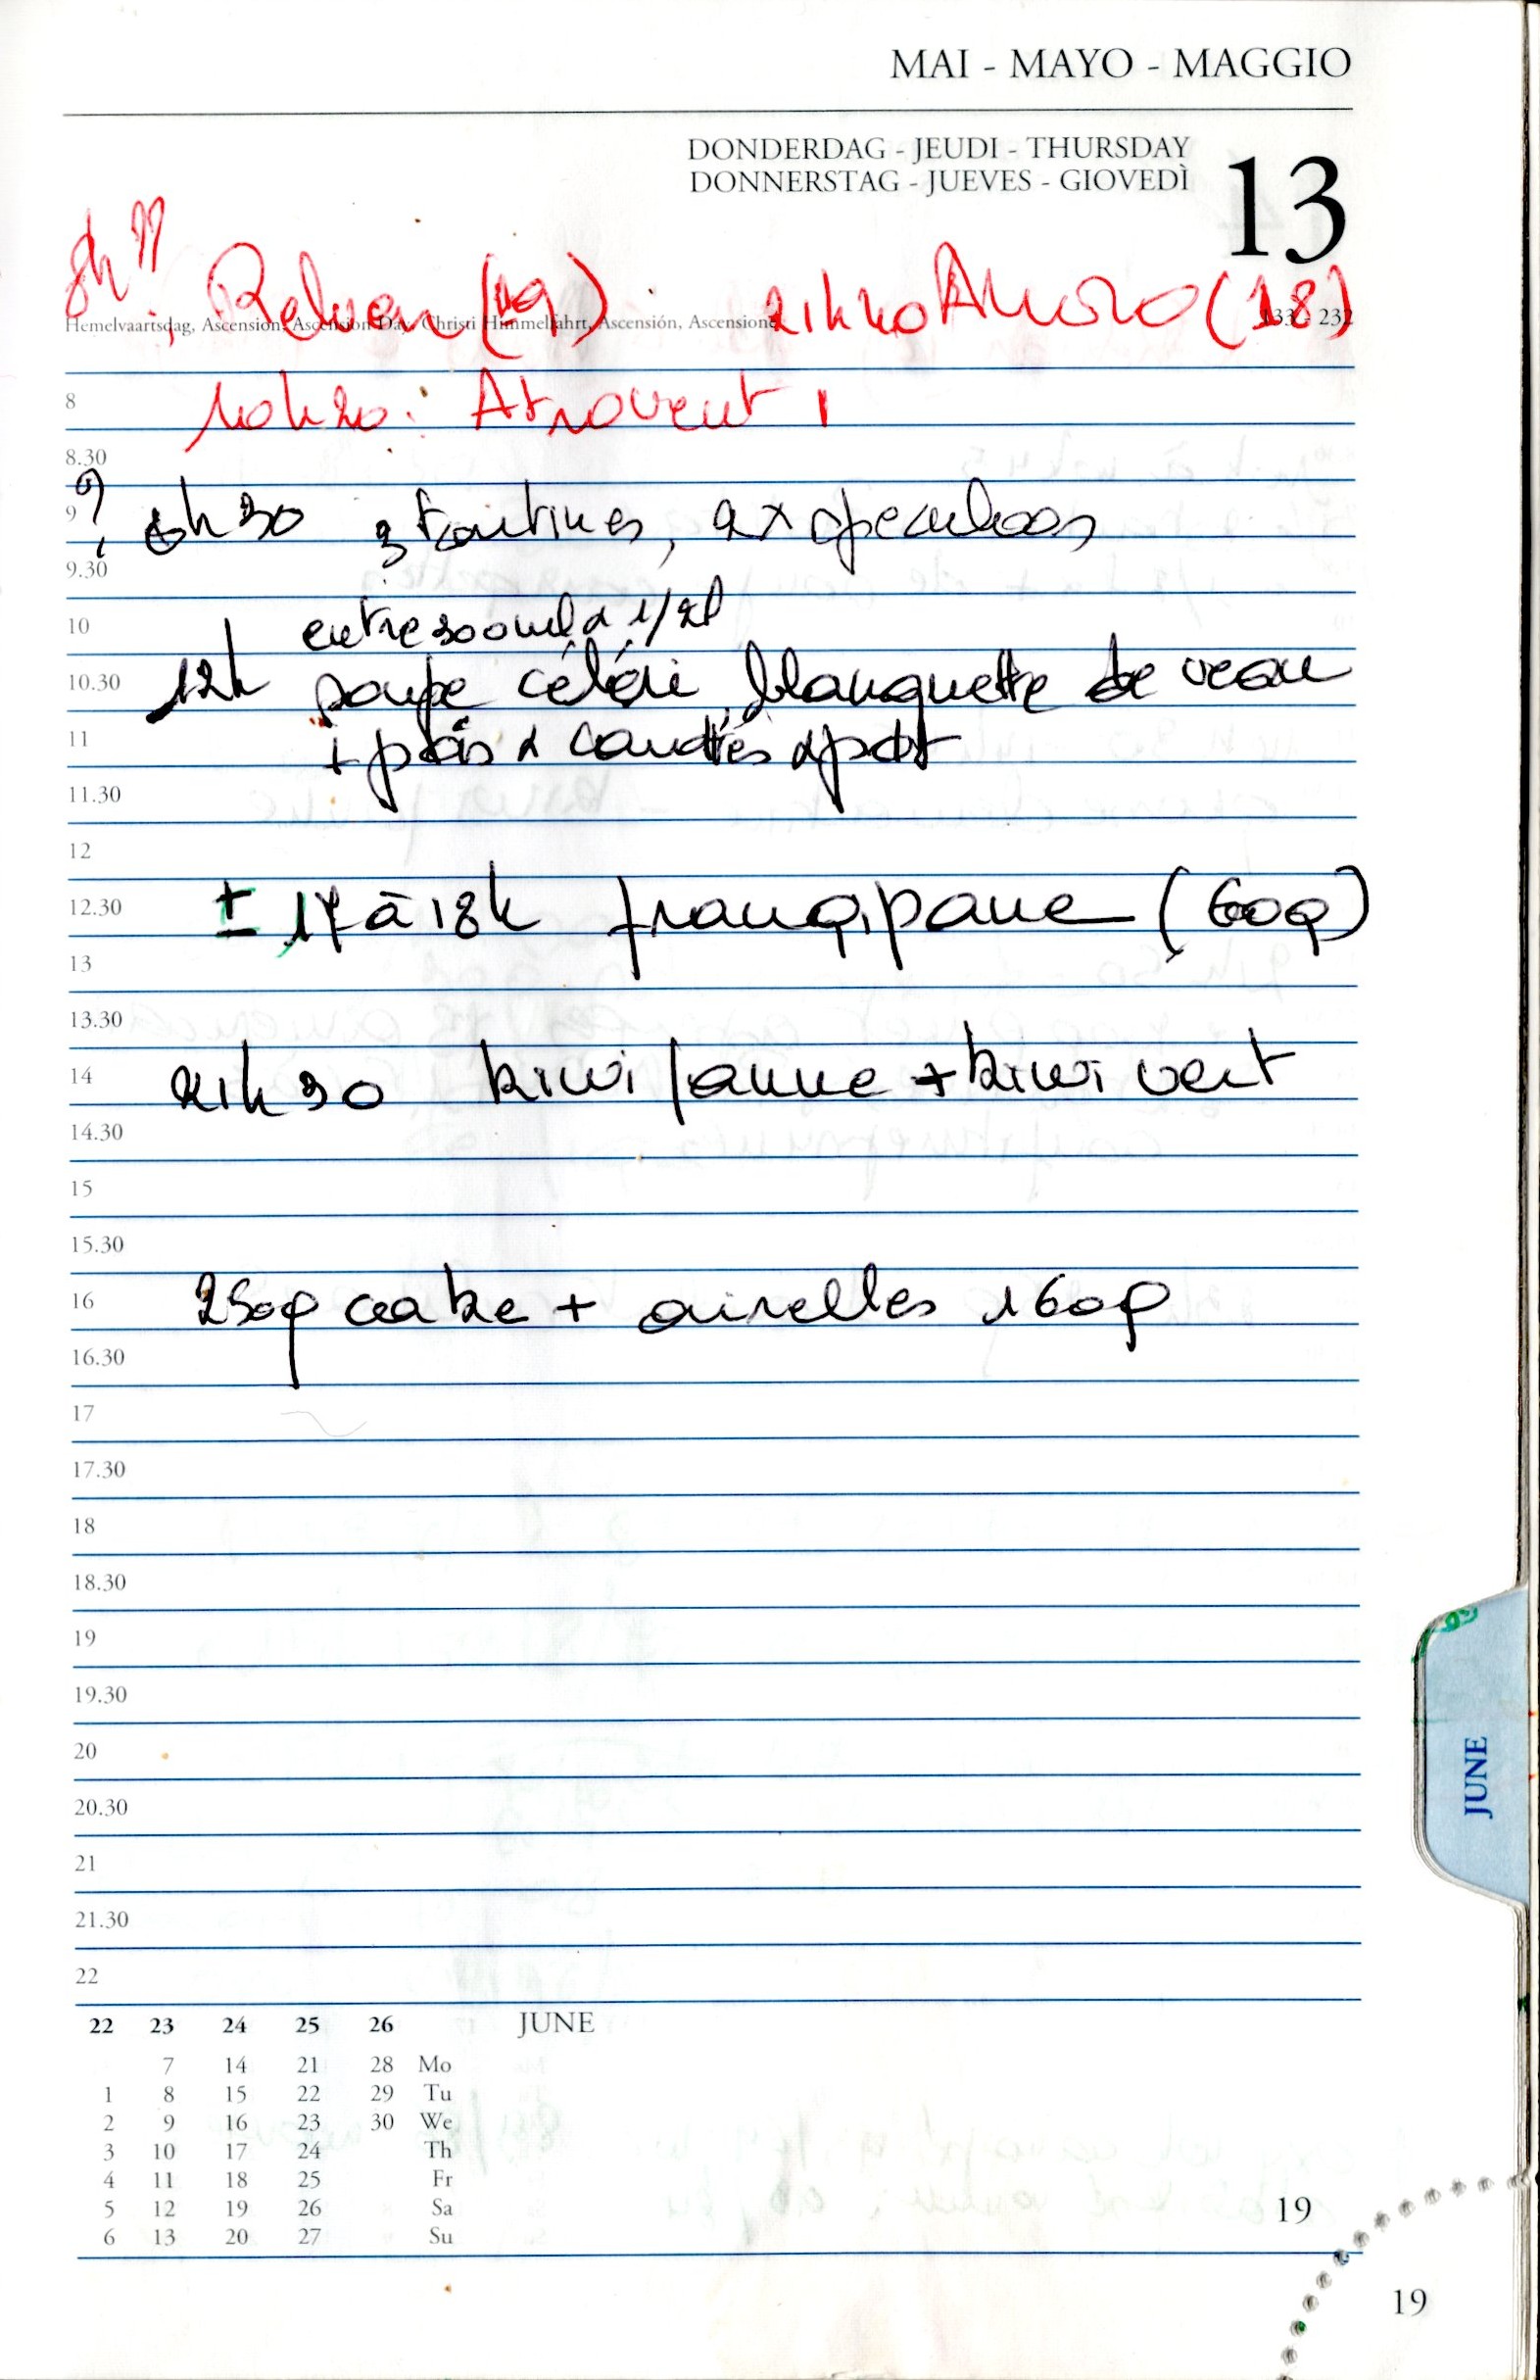 MAI - MAYO - MAGGIO
DONDERDAG - JEUDI - THURSDAY
DONNERSTAG - JUEVES - GIOVEDÌ
13
8h
Relvar (19) 21h20 (18)
Hemelvaartsdag, Ascension, Ascension Day, Christi Himmelfahrt, Ascensión, Ascensione 133 - 232
8
10h20: Atrovent 1
8.30
9
6h30 3 tartines, 2x speculoos
9.30
10
entre 300ml à 1/2l
10.30
12h soupe céléri, blanquette de veau
11
+ pois & carottes
11.30
12
12.30
± 17 à 18h frangipane (60g)
13
13.30
14
21h30 kiwi jaune + kiwi vert
14.30
15
15.30
16
250g cake + airelles 160g
16.30
17
17.30
18
18.30
19
19.30
20
20.30
21
21.30
22
22 23 24 25 26 JUNE
7 14 21 28 Mo
1 8 15 22 29 Tu
2 9 16 23 30 We
3 10 17 24 Th
4 11 18 25 Fr
5 12 19 26 Sa
6 13 20 27 Su
19
19
JUNE